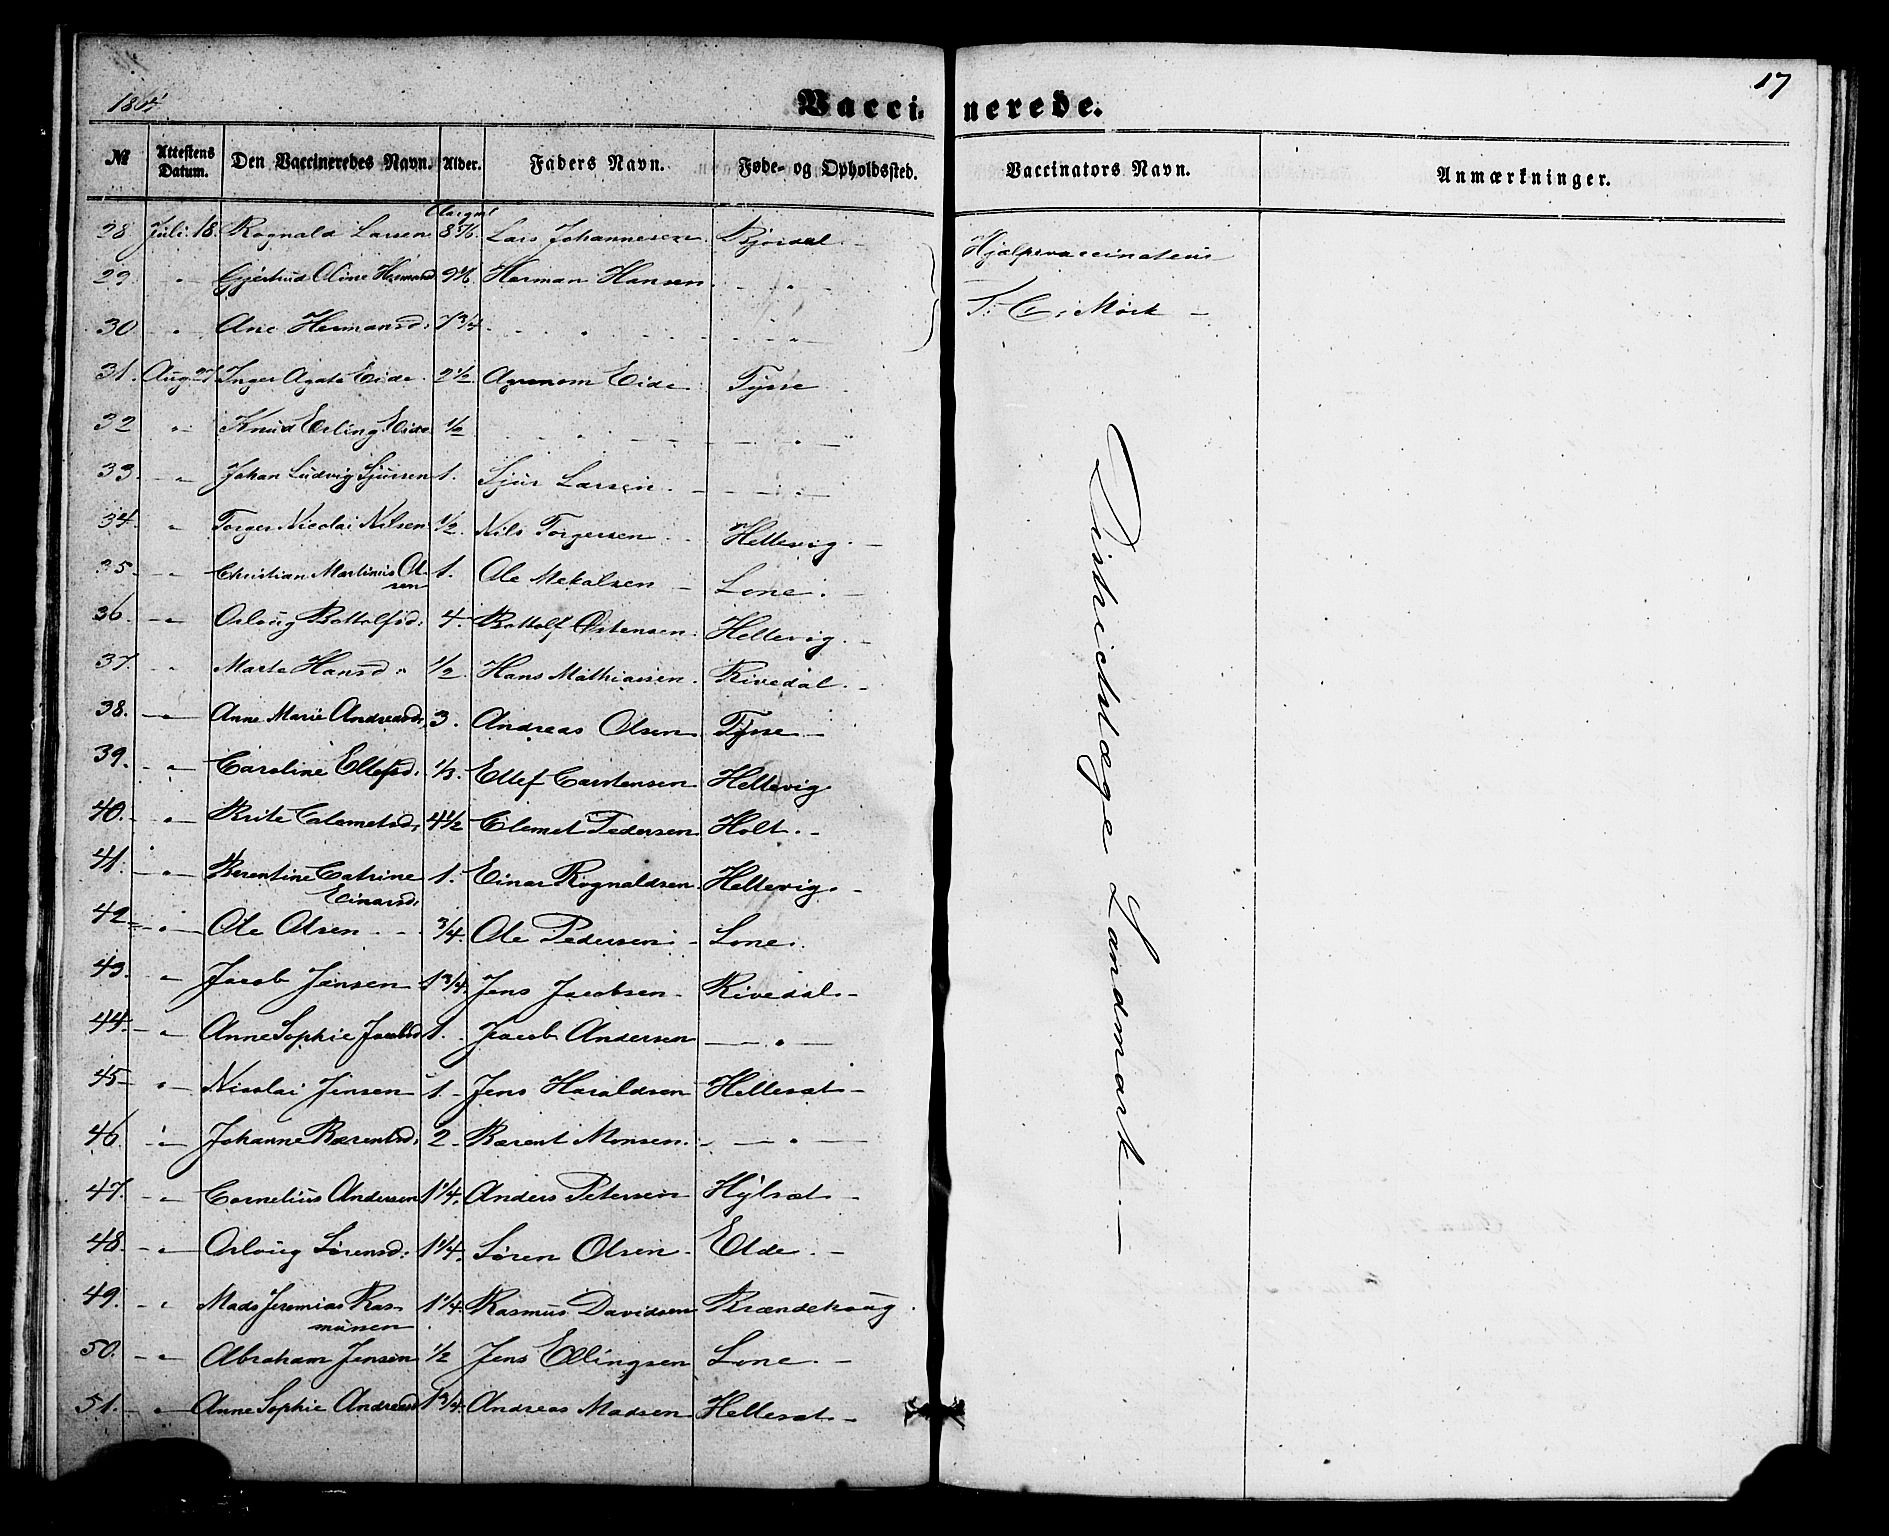 17
1864
Vaccinerede.
№ Attestens Datum. Den Vaccineredes Navn. Alder. Faders Navn. Føde- og Opholdssted. Vaccinators Navn. Anmærkninger.
28 Juli 18. Rognald Larsen Lars Johannesen. Hjælpevaccinateur
29 " Gjertrud Oline Hermansd. Herman Hansen - " -
30 - " Ane Hermansd: 7 3/4 - " - - " - Mørk -
31. Aug. 27. Inger Agate Eide. 2 1/2 Agronom Eide Tysse
32 " Knud Erling Eide - " - - " -
33 - " Johan Ludvig Sjursen 1. Sjur Larsen. - " -
34 " Torger Nicolai Nilsen 1/2 Nils Torgersen - Hellevig. -
35 - " Christian Martinus Ol-
sen 1. Ole Mekalsen - Lone. -
36. - " Oslaug Bottolfsd: 4. Bottolf Østensen. Hellevig. -
37. " Marte Hansd. 1/2 Hans Mathiasen. Rivedal. -
38. - " Anne Marie Andreasd: 3. Andreas Olsen Tysse -
39. - " Caroline Ellefsd. 1/3. Ellef Carstensen Hellevig.
40. - " Brite Clemetsd, 4 1/2 Clemet Pedersen Holt. -
41. - " Berentine Catrine
Einarsd: 1. Einar Rognaldsen. Hellevig. -
42 - " Ole Olsen - - 3/4. Ole Pedersen. - Lone.
43. " Jacob Jensen 1 3/4. Jens Jacobsen - Rivedal -
44. - " Anne Sophie Jacobsd 1. Jacob Andersen - " -
45 - " Nicolai Jensen 1. - Jens Haraldsen Hellesæt -
46. " Johanne Bærentsd. 2 - Bærent Monsen. - " -
47. - " Cornelius Andersen 1 1/4. Anders Petersen Hylsæt -
48. - " Oslaug Sørensd: 1 1/4. Søren Olsen - Elde. -
49. - " Mads Jeremias Ras-
musen 1 1/4. Rasmus Davidsen Brændehoug.
50. - " Abraham Jensen 1/2 Jens Ellingsen Lone. -
51. - " Anne Sophie Andreasd 1 3/4. Andreas Madsen Hellesæt -
Districtslæge Landmark. -